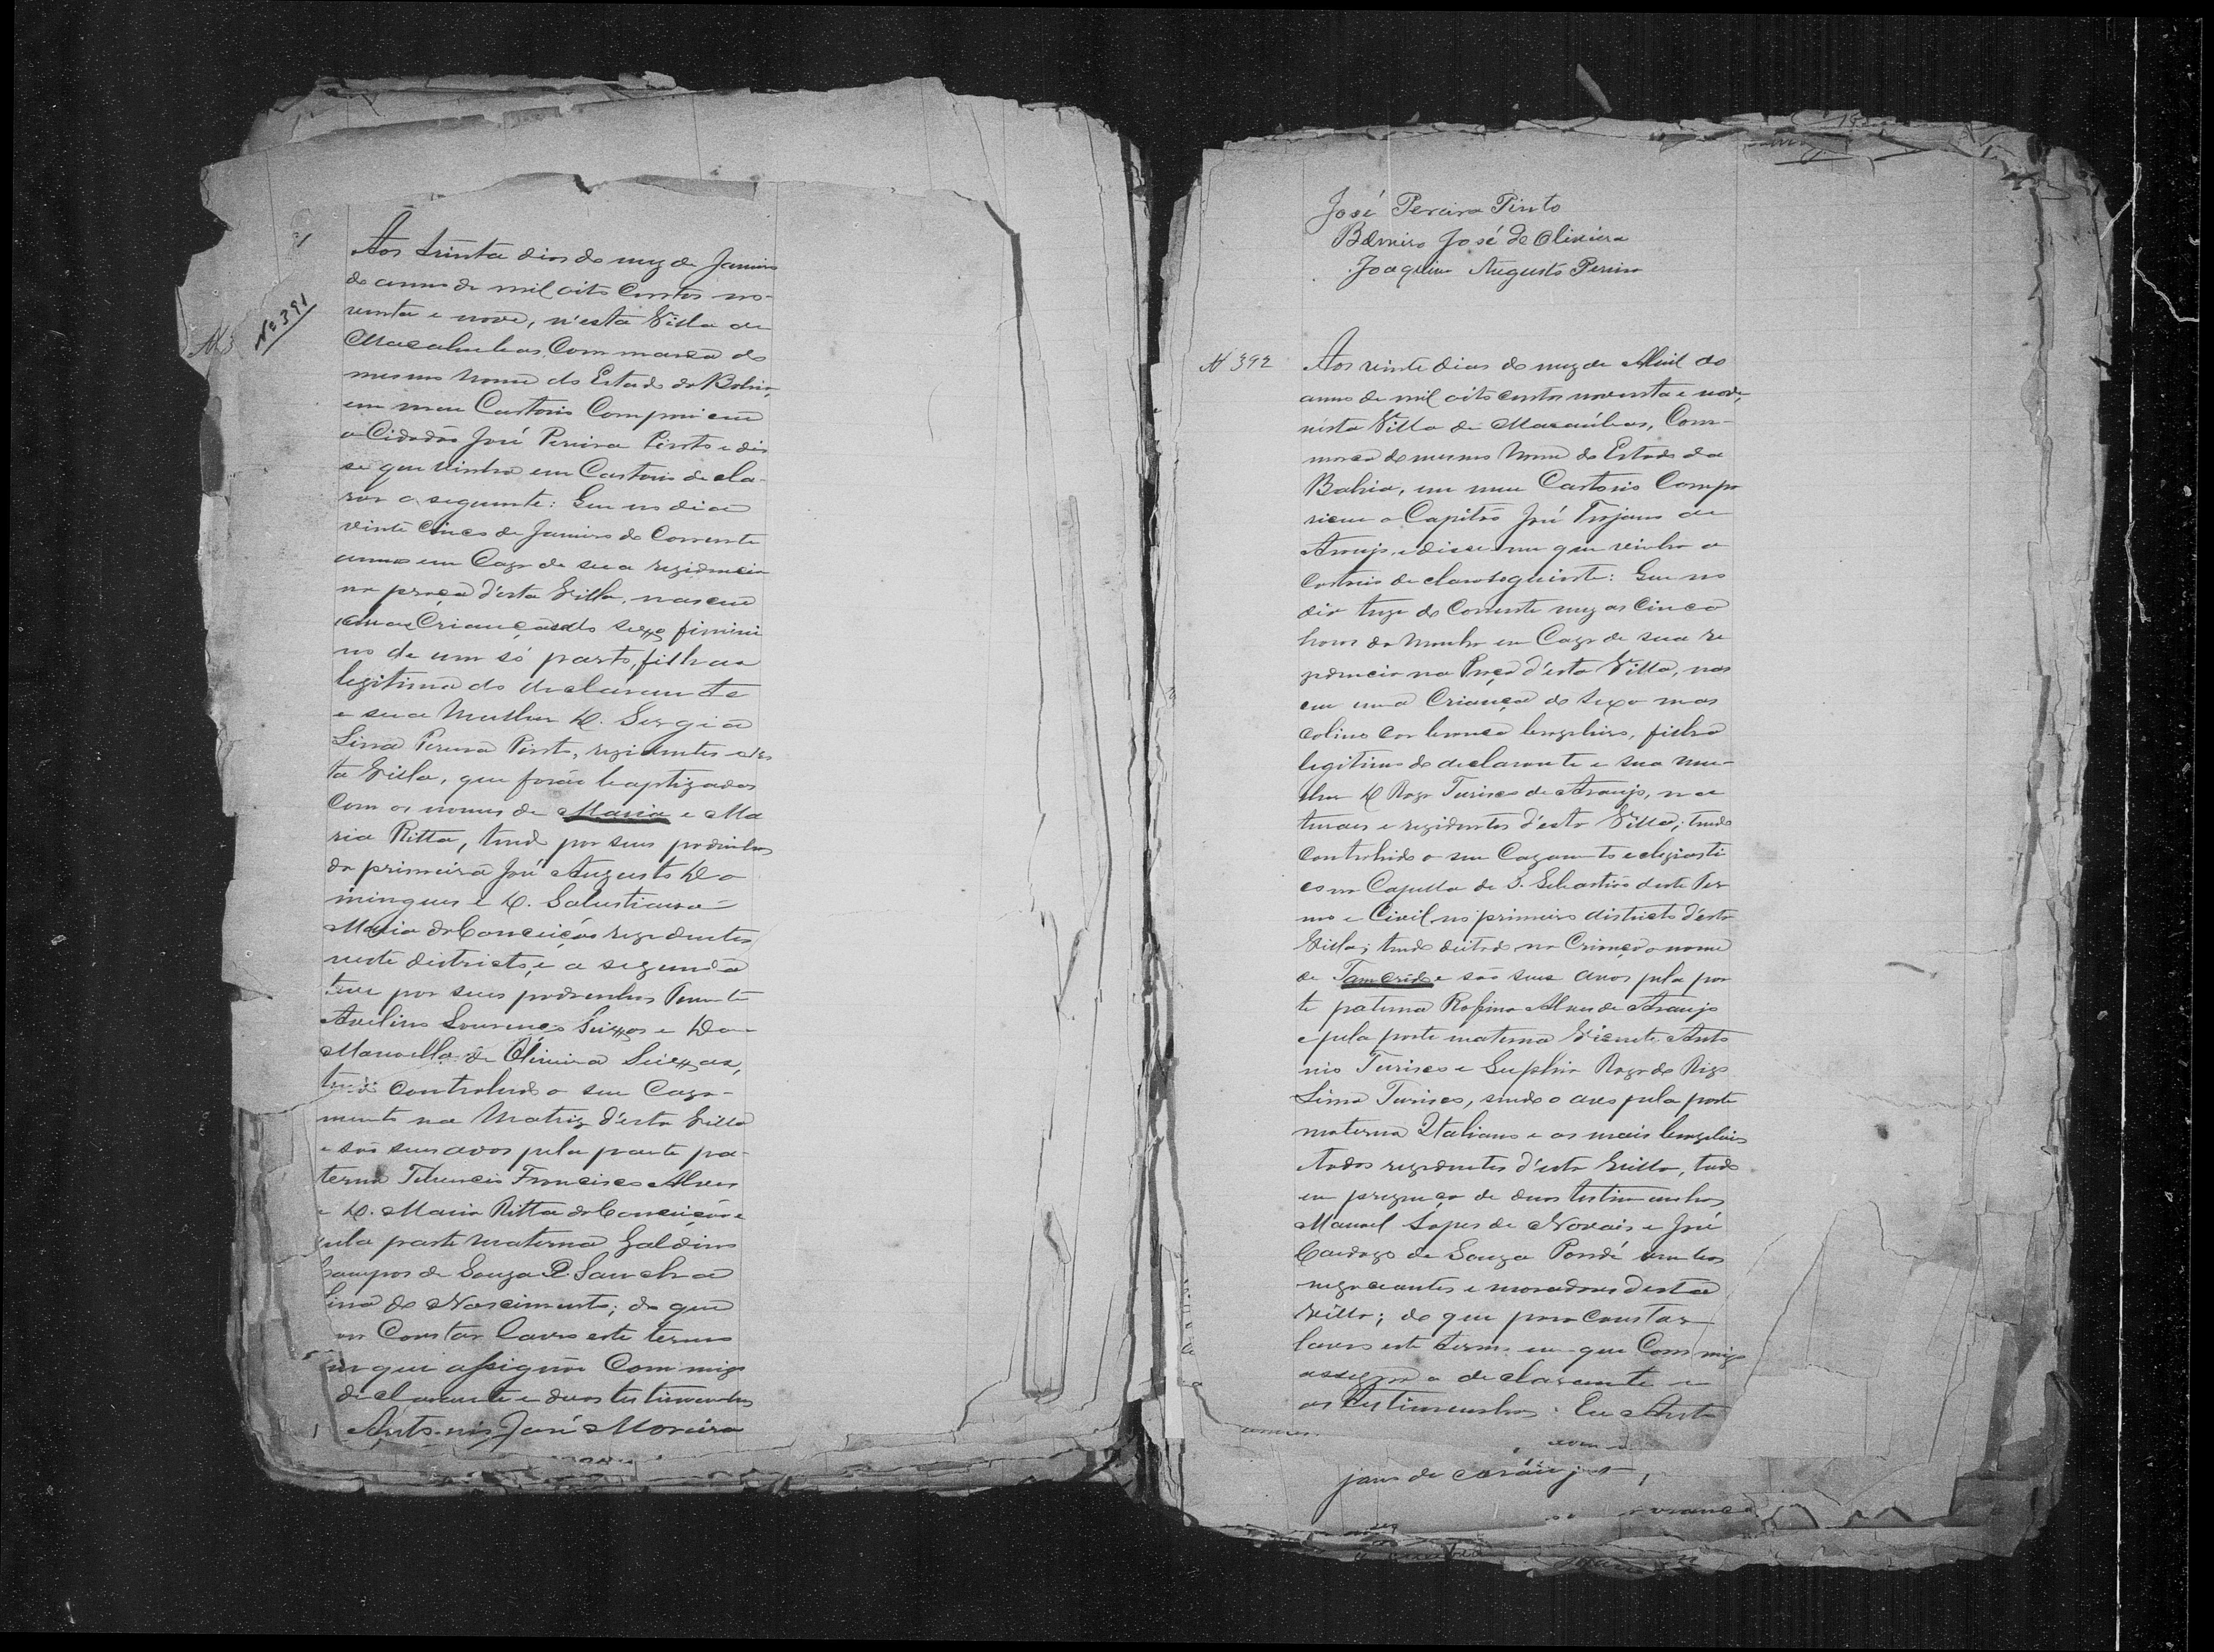 Nº 391
Aos trinta dias do mez de Janeiro
do anno de mil oito centos no-
venta e nove, n'esta Villa de
Macahubas Commarca do
mesmo nome do Estado da Bahia,
em meu Cartorio Compareceu
o Cidadão José Pereira Pinto e dis
se que vinha em Cartorio decla-
rar o seguinte: Que no dia
vinte cinco de Janeiro do Corrente
anno em Caza de sua rezidencia
na praça d'esta Villa, nasceu
Crianças do sexo femini
no de um só parto, filhas
legitima do declarante
e sua Mulher D. Sergia
Lina Pereira Pinto, rezidentes nes
ta Villa, que forão baptizadas
Com os nomes de Maria e Ma
ria Ritta, tendo por seus padrinhos
da primeira José Augusto Do
mingues e D. Salustiana
Maria da Conceição rezidentes
neste districto, e a segunda
teve por seus padrinhos Tenente
Avelino Lourenço Seixas e Dona
Manoella de Oliveira Seixas,
tendo Contrahido o seu Caza-
mento na Matriz d'esta Villa
e são seus avos pela parte pa-
terna Francisco Alves
e D. Maria Ritta da Conceição e
pela parte materna Galdino
Campos de Souza e Sancha
Lina do Nascimento; do que
Constar lavro este termo
em que assignão Commigo
declarante e duas testimunhas
Antonio José Moreira
José Pereira Pinto
Belmiro José de Oliveira
Joaquim Augusto Pereira
N 392
Aos vinte dias do mez de Abril do
anno de mil oito centos noventa e nove,
nesta Villa de Macaúbas, Com-
marca do mesmo Nome do Estado da
Bahia, em meu Cartorio Compa
receu o Capitão José Trojano de
Araujo, e disse me que vinha a
Cartorio declarar o seguinte: Que no
dia treze do Corrente mez as Cinco
horas da Manha em Caza de sua re
zidencia na Praça d'esta Villa, nas
ceu uma Criança do Sexo mas
colino Cor branca brazileiro, filho
legitimo do declarante e sua mu-
lher D Roza Turisco de Araujo, na
turaes e rezidentes d'esta Villa; tendo
Contrahido o seu Cazamento eclesiasti
co na Capella de S. Sebastião deste Ter
mo e Civil no primeiro districto d'esta
Villa; tendo deitado na Criança o nome
de Tancrêdo e são seus avos pela par
te paterna Rofino Alves de Araujo
e pela parte materna Vicente Anto
nio Turisco e Roza do Rigo
Lima Turisco, sendo o avo pela parte
materna Italiano e os mais brazileiros
todos rezidentes d'esta Villa, tudo
em prezença de duas testimunhas
Manoel Lopes de Novais e José
Cardozo de Souza Pondé ambos
negociantes e moradores desta
Villa; do que para Constar
lavro este termo em que Commigo
assigna o declarante e
as testimunhas. Eu Anto
jano de Araujo